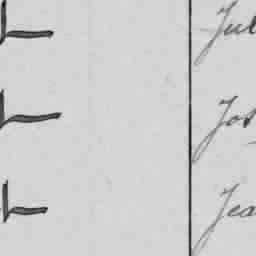 Jul
Jos
Jea